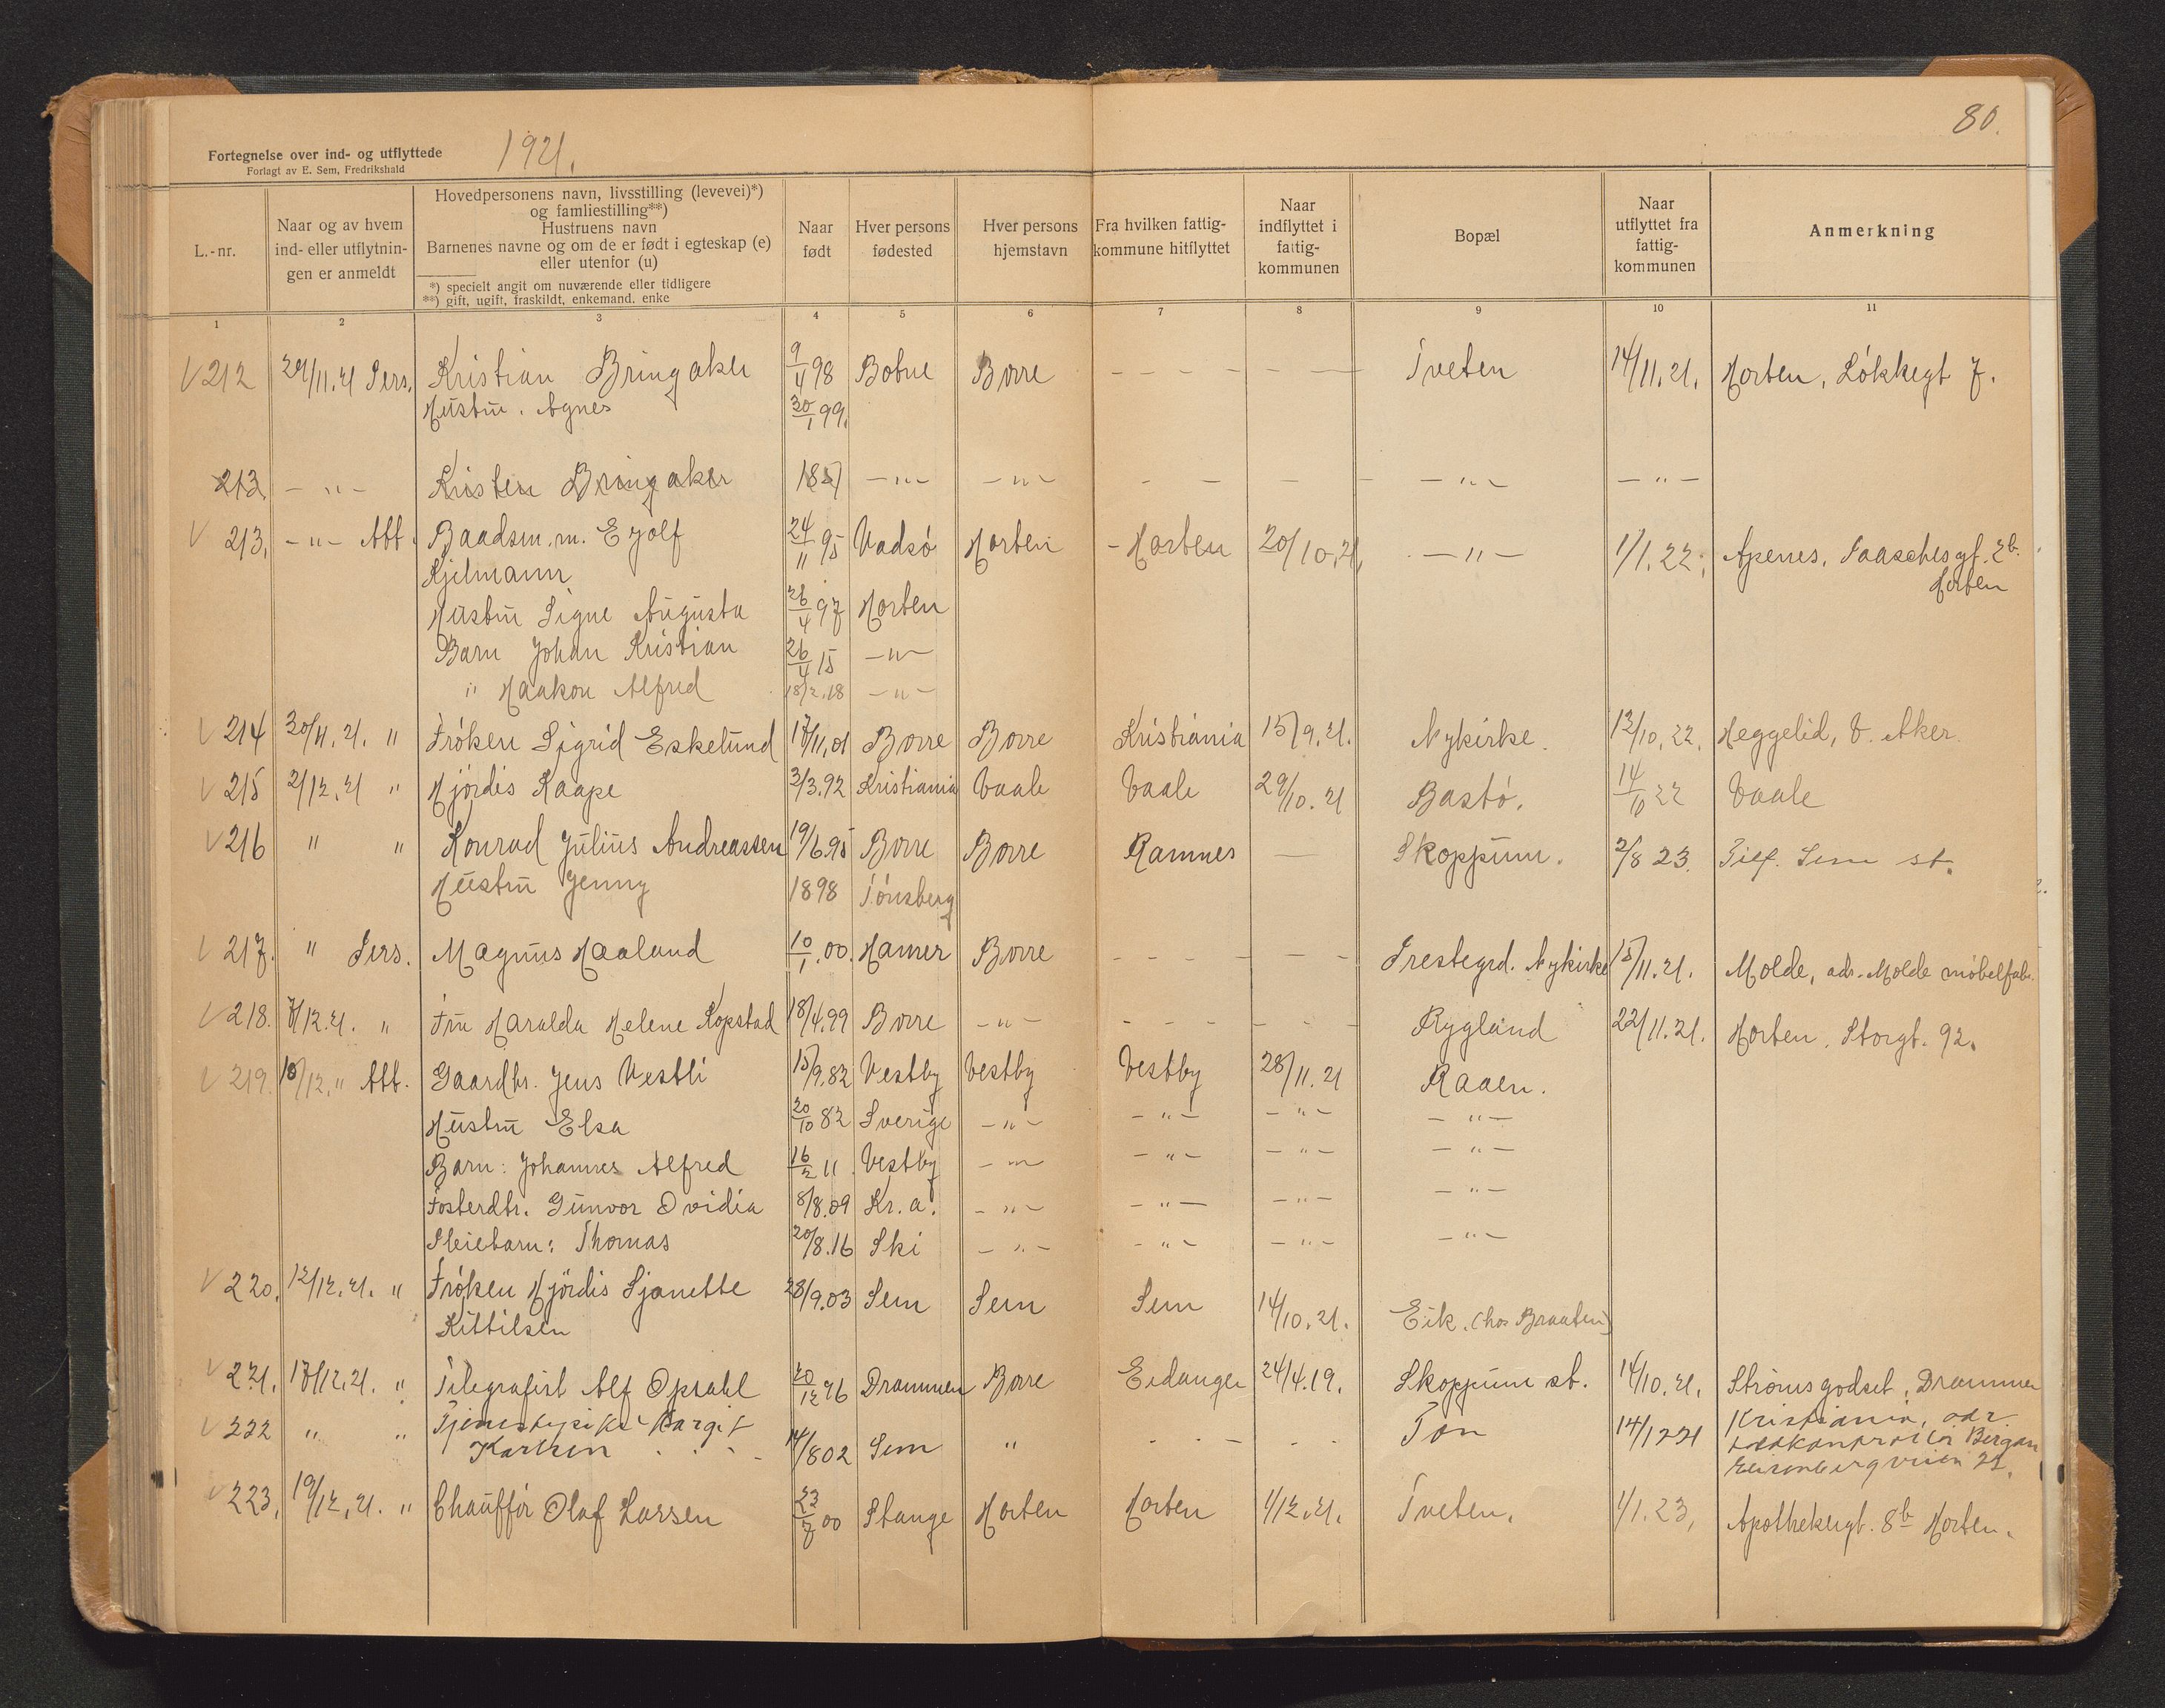 80.
Fortegnelse over ind- og utflyttede 1921.
Forlagt av E. Sem, Fredrikshald
L.-nr.
Naar og av hvem
ind- eller utflytnin-
gen er anmeldt
Hovedpersonens navn, livsstilling (levevei)*)
og famliestilling**)
Hustruens navn
Barnenes navne og om de er født i egteskap (e)
eller utenfor (u)
*) specielt angit om nuværende eller tidligere
**) gift, ugift, fraskildt, enkemand, enke
Naar
født
Hver persons
fødested
Hver persons
hjemstavn
Fra hvilken fattig-
kommune hitflyttet
Naar
indflyttet i
fattig-
kommunen
Bopæl
Naar
utflyttet fra
fattig-
kommunen
Anmerkning
1 2 3 4 5 6 7 8 9 10 11
√ 212 29/11.21 Pers. Kristian Bringaker 9/4 98 Borre - - - - - Tveten 14/11.21. Horten, Løkkegt 7.
Hustru. Agnes 30/1 99.
213. - " - Kristen Bringaker - " - - " - - - - - - " - - " -
√ 213. - " - Att. Baadsm. m. Eyolf 24/11 95 Vadsø Horten - Horten 20/10.21 - " - 1/1.22. Apenes, Paaschesgt. 2b.
Kjelmann Horten
Hustru Signe Augusta 26/4 97 Horten
Barn Johan Kristian 26/4 15 - " -
" Haakon Alfred 18/2.18 - " -
√ 214 30/11.21. " Frøken Sigrid Eskelund 17/11.01 Borre Borre Kristiania 15/9.21. Nykirke. 12/10.22. Heggelid, V. Aker.
√ 215 2/12.21 " Hjørdis Kaape 3/3.92 Kristiania Vaale Vaale 29/10.21 Bastø. 14/10 22 Vaale
√ 216 " " Konrad Julius Andreassen 19/6.95 Borre Borre Ramnes — Skoppum. 2/8 23. Sem st.
Hustru Jenny 1898 Tønsberg
√ 217. " Pers. Magnus Haaland 10/1.00. Hamer Borre - - - - - - Prestegrd. Nykirke 15/11.21. Molde, adr. Molde møbelfabr.
√ 218. 7/12.21. " Fru Haralda Helene Kopstad 18/4.99 Borre - " - - - - - - - Rygland 22/11.21. Horten, Storgt. 92.
√ 219. 10/12. " Att. Gaardbr. Jens Vestli 15/9.82 Vestby Vestby Vestby 28/11.21 Raaen.
Hustru Elsa 20/10 82 Sverige - " - - " - - " - - " -
Barn: Johannes Alfred 16/2 11. Vestby - " - - " - - " - - " -
Fosterdtr. Gunvor Ovidia 8/8.09 Kr.a. - " - - " - - " - - " -
Pleiebarn: Thomas 20/8.16 Ski - " - - " - - " - - " -
√ 220. 12/12.21. " Frøken Hjördis Sjanette 28/9.03 Sem Sem Sem 14/10.21. Eik. (hos Braaten)
Kittilsen
√ 221. 17/12.21. " Telegrafist Alf Opsahl 20/12 96 Drammen Borre Eidanger 24/4.19. Skoppum st. 14/10.21. Strømsgodset, Drammen
√ 222 " " Tjenestepike Margit 14/8 02 Sem " - - - - - Ton 14/12 21 Kristiania, adr.
Karlsen Bergan
21.
√ 223. 19/12.21. " Chauffør Olaf Larsen 23/7 00 Stange Horten Horten 1/12.21. Tveten. 1/1.23. Apothekergt. 8b Horten.